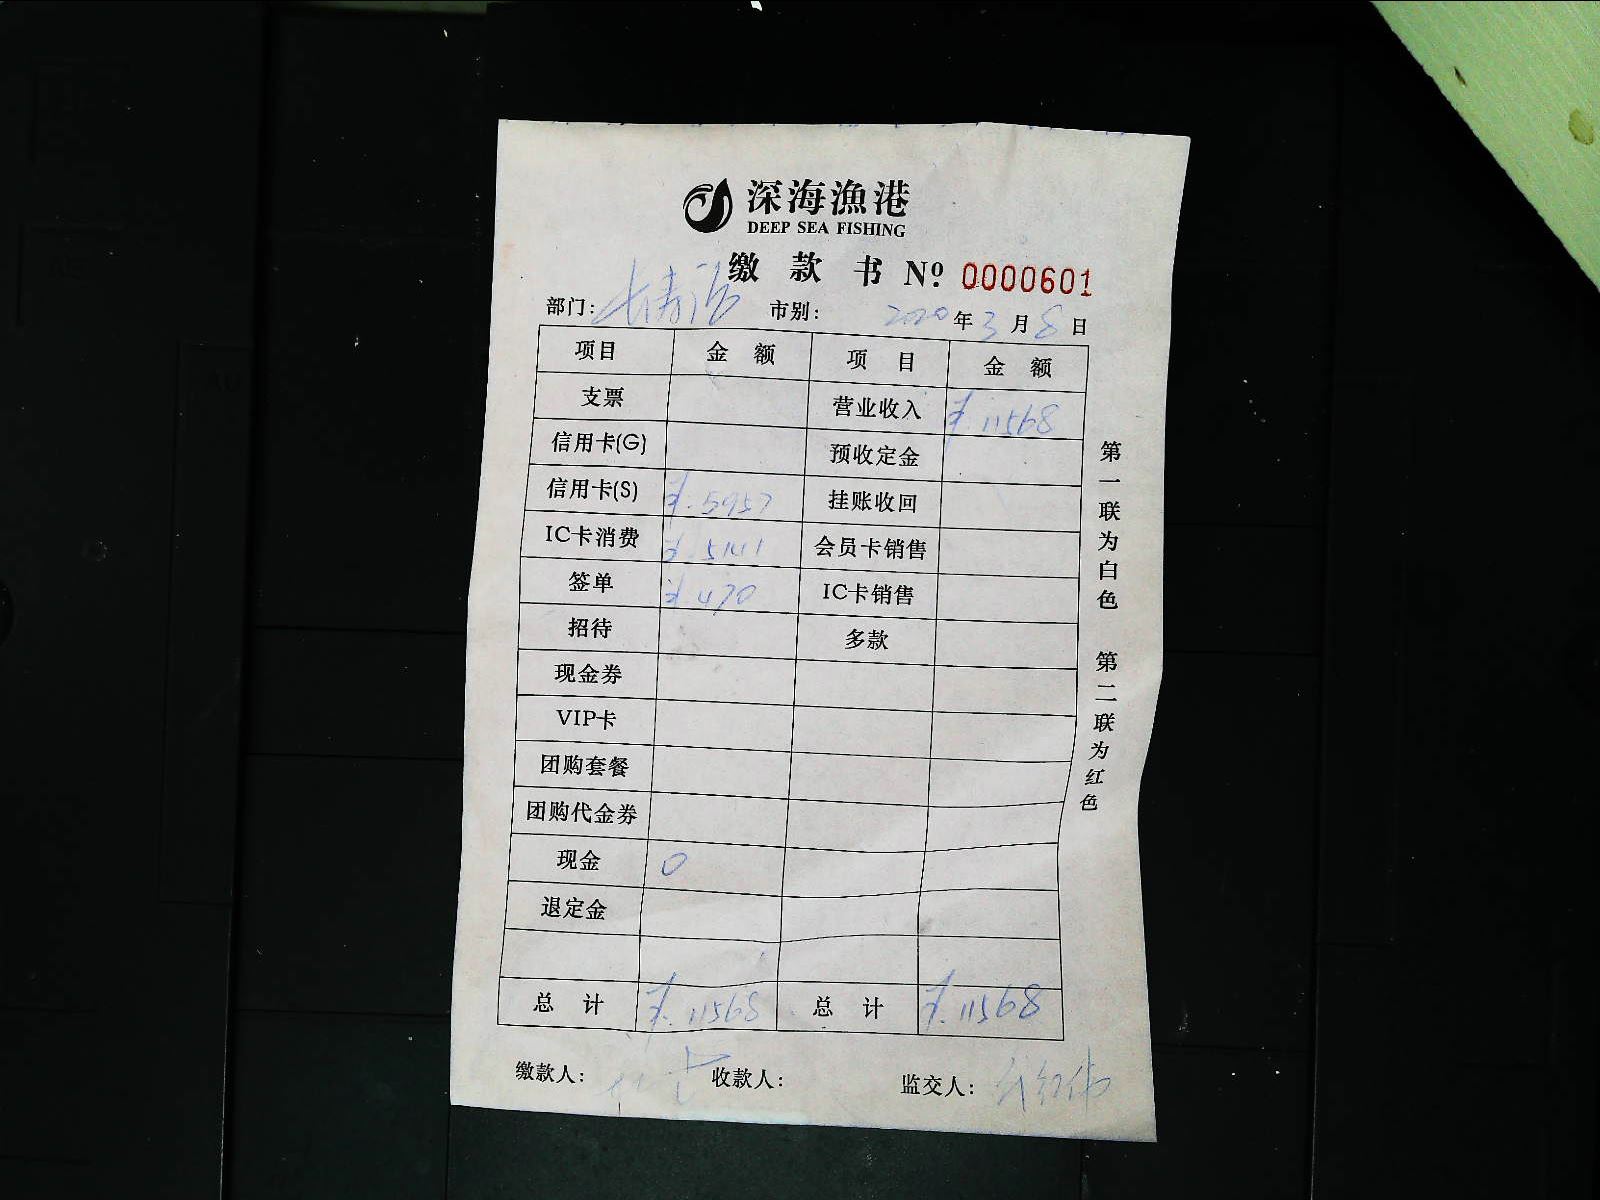 深海漁港
DEEP SEA FISHING
缴款书 Nº 0000601
部门: 市别: 2020年3月8日
项目 金额 项目 金额
支票 营业收入 ¥.11568
信用卡(G) 预收定金
信用卡(S) ¥.5957 挂账收回
IC卡消费 ¥.5141 会员卡销售
签单 ¥.470 IC卡销售
招待 多款
现金券
VIP卡
团购套餐
团购代金券
现金 0
退定金
总计 ¥.11568 总计 ¥.11568
缴款人: 收款人: 监交人:
第一联为白色 第二联为红色